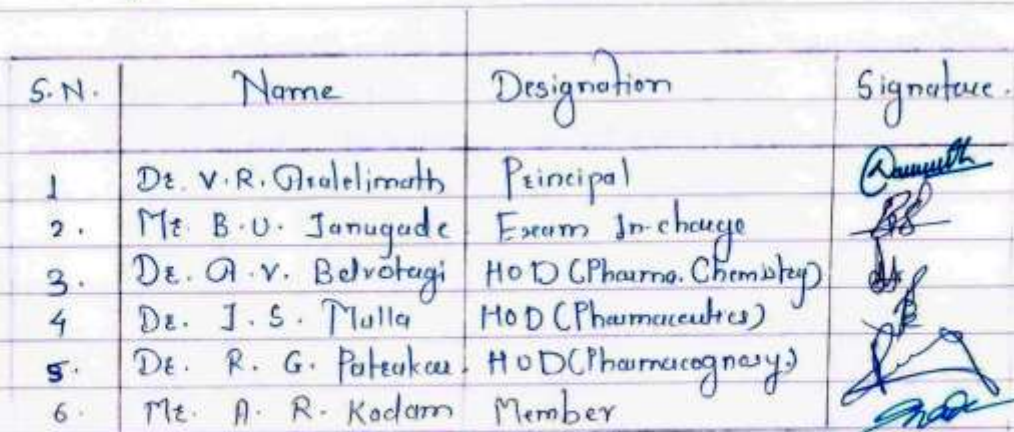 S.N. Name Designation Signature.
1 Dr. V.R. Aralelimath Principal
2. Mr. B.U. Janugade Exam In-charge
3. Dr. A.V. Belvotagi HOD (Pharma. Chemistry)
4 Dr. J.S. Mulla HOD (Pharmaceutics)
5. Dr. R. G. Patrakar HOD (Pharmacognosy)
6. Mr. A. R. Kadam Member